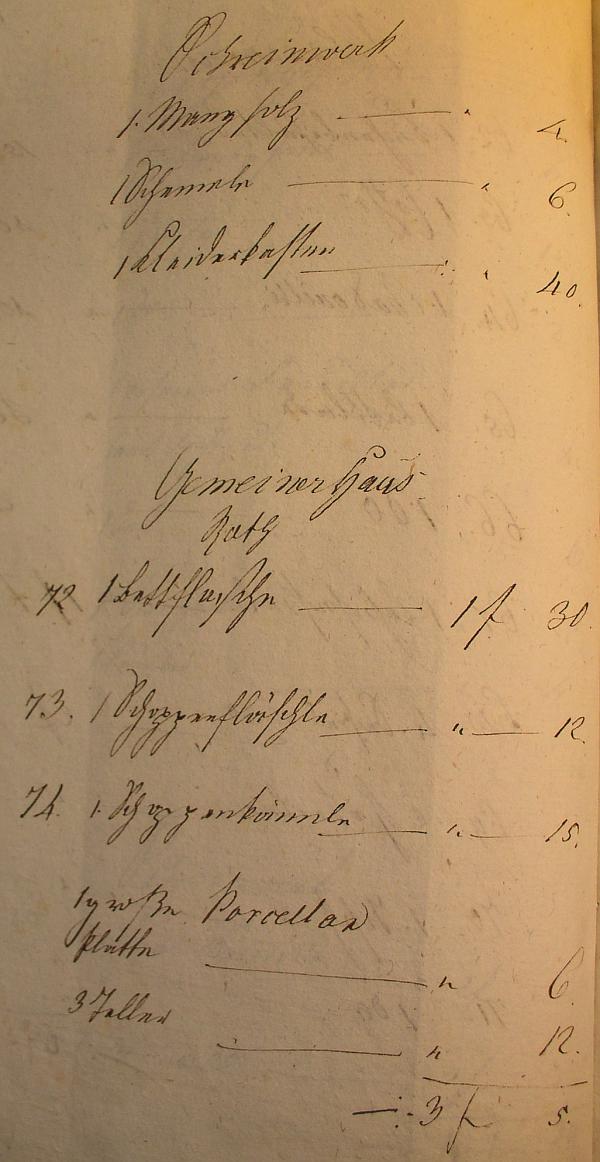 Schreinwerk
1. Mang holz — " 4.
1 Schemele — " 6.
1 Kleiderkasten — " 40.
Gemeiner Haus
Rath
72 1 Bettflasche — 1 f 30
73. 1 Schoppenfläschle — " — 12.
74. 1. Schoppenkännle — " — 15.
1 große Porcellan
Platte — " 6.
3 Teller — " 12.
— 3 f 5.